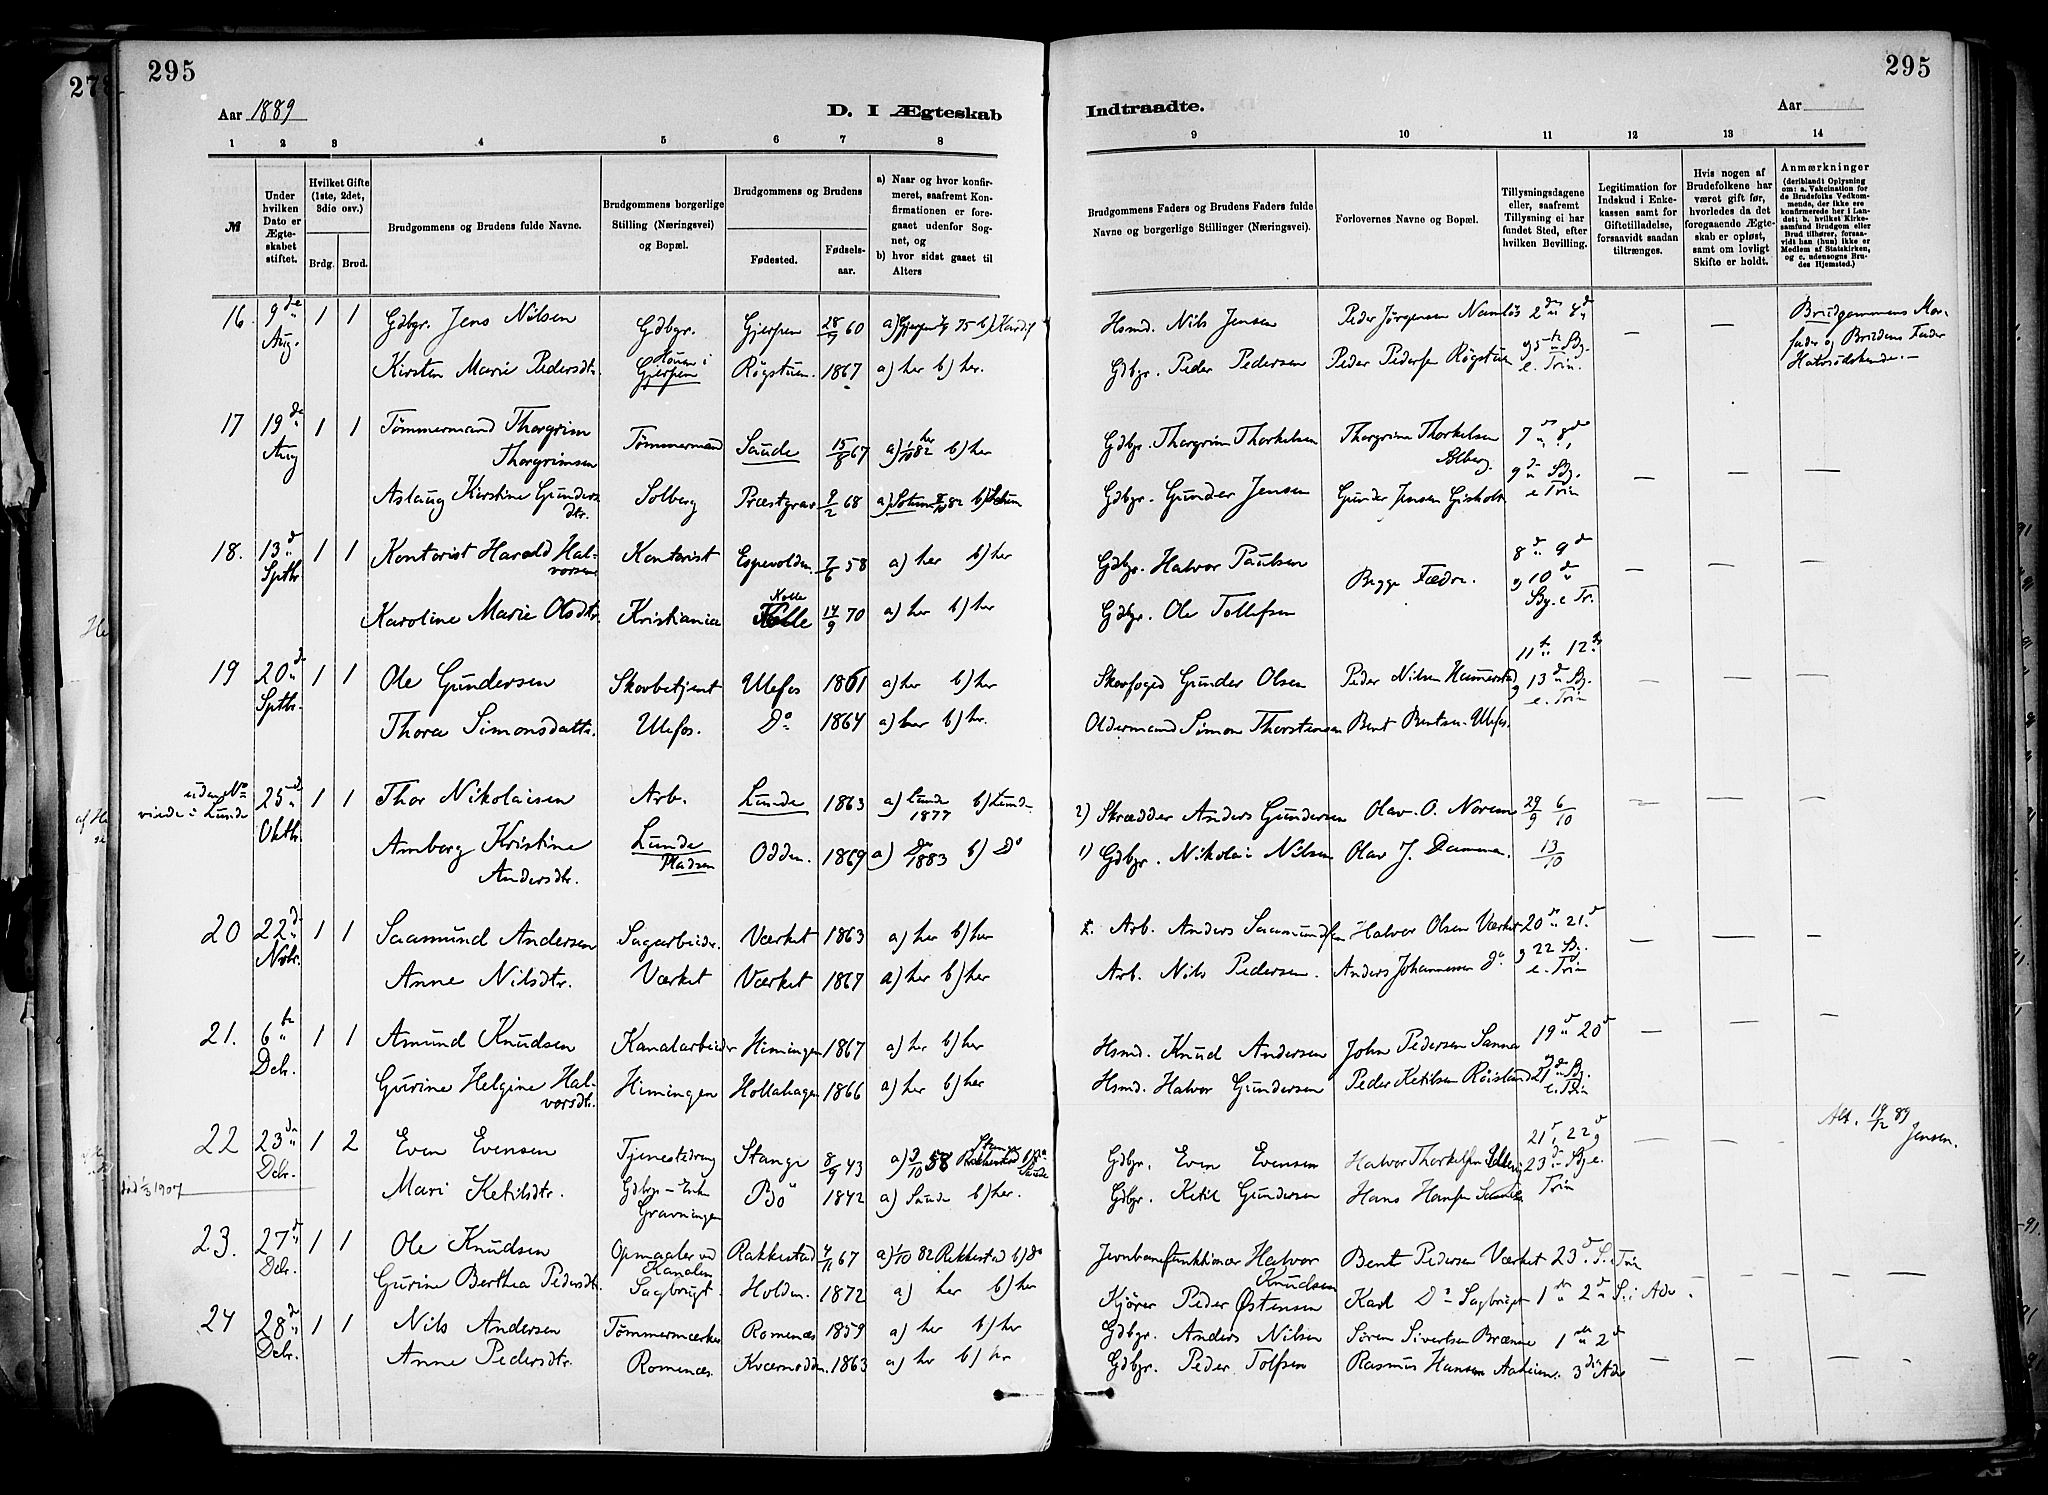 295
295
Aar 1889
D. I Ægteskab
Indtraadte.
Aar
1 2 3 4 5 6 7 8 9 10 11 12 13 14
№
Under hvilken Dato er Ægteskabet stiftet.
Hvilket Gifte (1ste, 2det, 3die osv.)
Brdg. Brud.
Brudgommens og Brudens fulde Navne.
Brudgommens borgerlige Stilling (Næringsvei) og Bopæl.
Brudgommens og Brudens
Fødested.
Fødselsaar.
a) Naar og hvor konfirmeret, saafremt Konfirmationen er foregaaet udenfor Sognet, og
b) hvor sidst gaaet til Alters
Brudgommens Faders og Brudens Faders fulde Navne og borgerlige Stillinger (Næringsvei).
Forlovernes Navne og Bopæl.
Tillysningsdagene eller, saafremt Tillysning ei har fundet Sted, efter hvilken Bevilling.
Legitimation for Indskud i Enkekassen samt for Giftetilladelse, forsaavidt saadan tiltrænges.
Hvis nogen af Brudefolkene har været gift før, hvorledes da det foregaaende Ægteskab er opløst, samt om lovligt Skifte er holdt.
Anmærkninger
(deriblandt Oplysning om: a. Vakcination for de Brudefolks Vedkommende, der ikke ere konfirmerede her i Landet; b. hvilket Kirkesamfund Brudgom eller Brud tilhører, forsaavidt han (hun) ikke er Medlem af Statskirken, og c. udensogns Brudes Hjemsted.)
16. 9de Aug. 1 1 Gdbgr. Jens Nilsen Gdbgr. Gjerpen 28/9 60 Hsmd. Nils Jensen Peder Jørgensen Namløs 2den 8de
Kirsten Marie Pedersdtr. Gjerpen Røgstuen. 1867 a) her b) her. Gdbgr. Peder Pedersen Peder Pedersen Røgstuen e. Trin.
Brudgommens Morfader og Brudens Fader Halvsødskende.
17 19de Aug 1 1 Tømmermand Thorgrim Thorgrimsen Tømmermand Saude 15/8 67 a) 1/10 82 her b) her Gdbgr. Thorgrim Thorkelsen Thorgrim Thorkelsen Solberg. 7de 8de
Aslaug Kirstine Gundersdtr. Solberg Præstgrav 9/2 68 Gdbgr. Gunder Jensen Gunder Jensen Gisholt 9de S. e Trin
18. 13de Sptbr. 1 1 Kontorist Harald Halvorsen Kontorist Espevolden. 7/6 58 a) her b) her Gdbgr. Halvor Paulsen 8de 9de
Karoline Marie Olsdtr. Kristiania Kolle 14/9 70 a) her b) her Gdbgr. Ole Tollefsen Begge Fædre. 10de e. Tr.
19 20de Sptbr. 1 1 Ole Gundersen Skovbetjent Ulefos 1861 a) her b) her Skovfoged Gunder Olsen Peder Nilsen Heimerstad 11te 12te
Thora Simonsdatter. Ulefos. Do 1864 a) her b) her. Oldermand Simon Thorstensen Bent Bentsen Ulefos. 13de e. Trin
uden No viede i Lunde 25de Oktbr. 1 1 Thor Nikolaisen Arb. Lunde 1863 a) Lunde 1877 b) Lunde 2) Skrædder Anders Gundersen Olav O. Norem 29/9 6/10
Amborg Kristine Andersdtr. Lunde Pladsen Odden. 1869 a) Do 1883 b) Do 1) Gdbgr. Nikolai Nilsen Olav J. Damma. 13/10
20 22de Nvbr. 1 1 Saamund Andersen Sagarbeidr. Værket 1863 a) her b) her Arb. Anders Saamundsen Halvor Olsen Værket 20de 21de
Anne Nilsdtr. Værket Værket 1867 a) her b) her Arb. Nils Pedersen. Anders Johannessen Do 22 e. Trin
21. 6te Dcbr. 1 1 Amund Knudsen Kanalarbeider Himingen 1867 a) her b) her Hsmd. Knud Andersen John Pedersen Sanna 19de 20de
Gurine Helgine Halvorsdtr. Himingen Hollahagen 1866 a) her b) her Hsmd. Halvor Gundersen Peder Ketilsen Røisland 21de e. Trin
22 23de Dcbr. 1 2 Even Evensen Tjenestedreng Stange 8/9 43 Gdbgr. Even Evensen Halvor Thorkelsen 21de 22de
død 1/3 1907 Mari Ketilsdtr. Gdbgr-Enke Gravningen Bø 1842 a) Saude b) her. Gdbgr. Ketil Gundersen Hans Hansen 23de e. Trin
Att. 19/12 89 Jensen.
23. 27de Dcbr. 1 1 Ole Knudsen Opmaaler ved Kanalen Rakkestad 4/11 67 a) 1/10 82 Rakkestad b) Do Jernbanefunktionær Halvor Knudsen Bent Pedersen Værket 23de S. Trin
Gurine Berthea Pedersdtr. Sagbrugt. Holden. 1872 a) her b) her Kjører Peder Østensen Karl Do Sagbruget 1ste 2den S. i Adv.
24 28de Dcbr. 1 1 Nils Andersen Tømmermærker Romenæs 1859 a) her b) her Gdbgr. Anders Nilsen Søren Sivertsen Brænne 1ste 2den
Anne Pedersdtr. Romenæs. Kværnodden. 1863 a) her b) her Gdbgr. Peder Tolfsen Rasmus Hansen Aaheim. 3die Adv